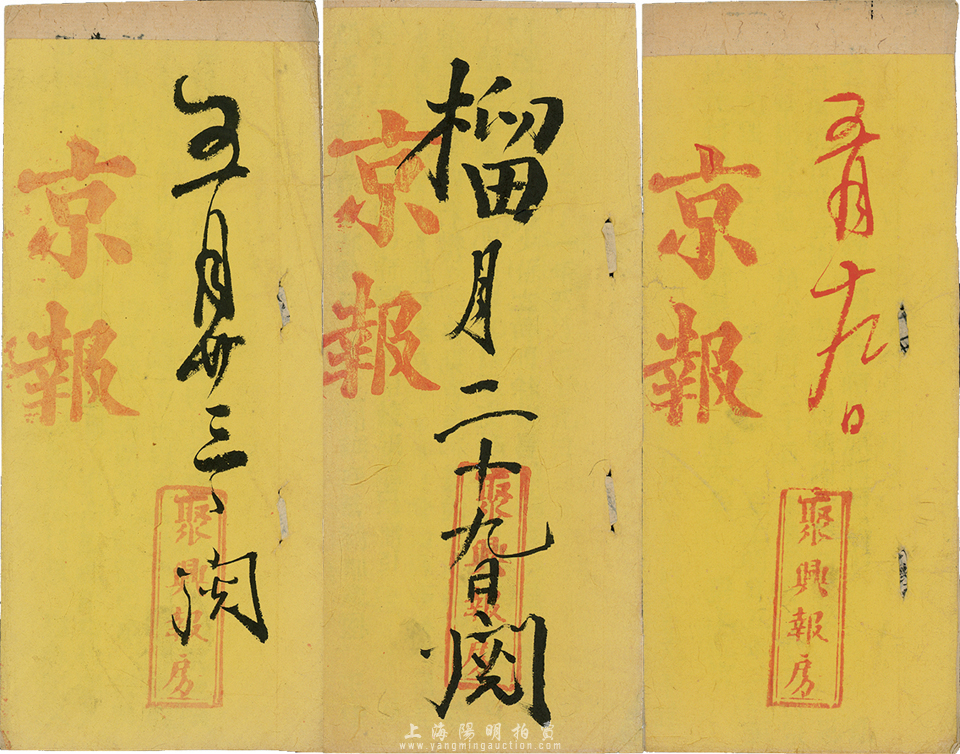 京報
五月廿三日閱
聚興報房
京報
榴月二十九日閱
聚興報房
京報
五月十九日
聚興報房
上海陽明拍賣
www.yangmingauction.com